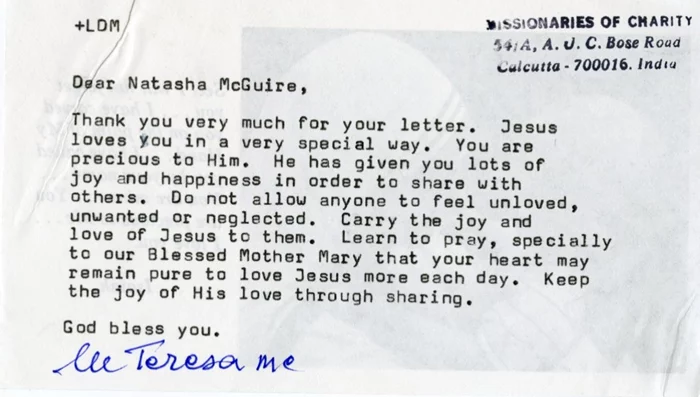 +LDM
MISSIONARIES OF CHARITY
54/A, A. J. C. Bose Road
Calcutta - 700016. India
Dear Natasha McGuire,
Thank you very much for your letter. Jesus
loves you in a very special way. You are
precious to Him. He has given you lots of
joy and happiness in order to share with
others. Do not allow anyone to feel unloved,
unwanted or neglected. Carry the joy and
love of Jesus to them. Learn to pray, specially
to our Blessed Mother Mary that your heart may
remain pure to love Jesus more each day. Keep
the joy of His love through sharing.
God bless you.
Teresa mc